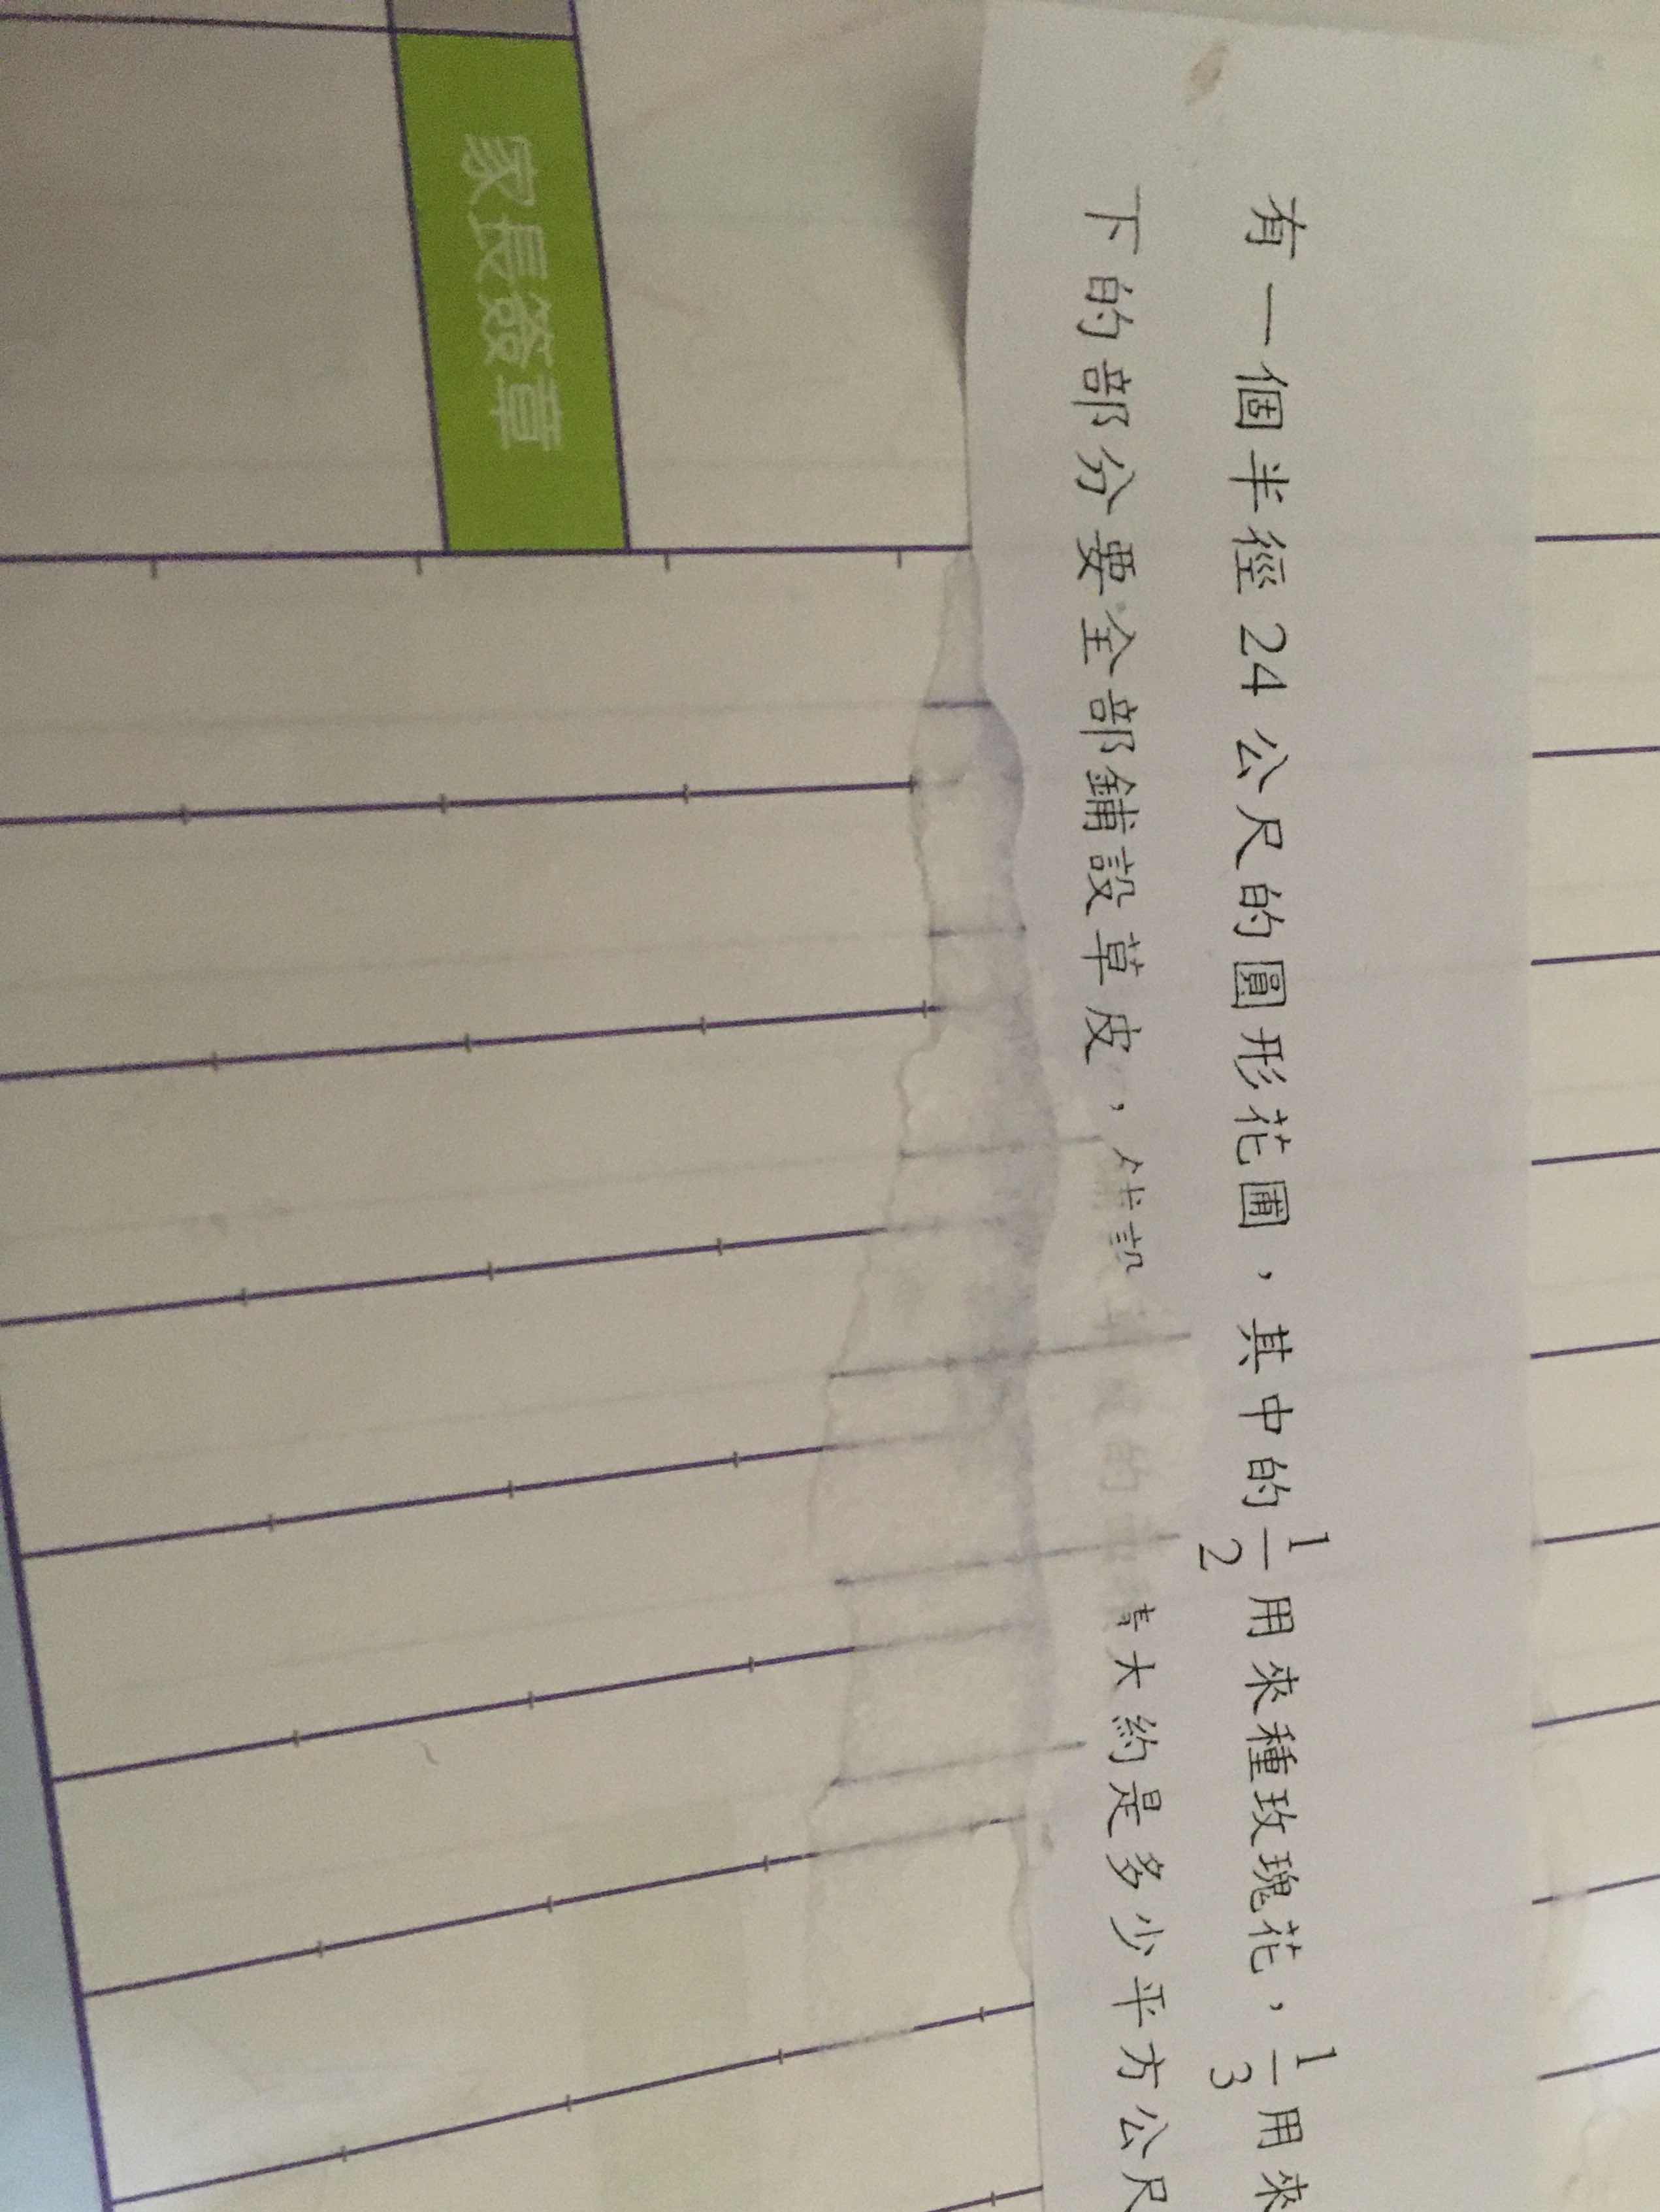 有一個半徑24公尺的圓形花圃，其中的1/2用來種玫瑰花，1/3用來
下的部分要全部鋪設草皮，鋪設草皮的面積大約是多少平方公尺
家長簽章